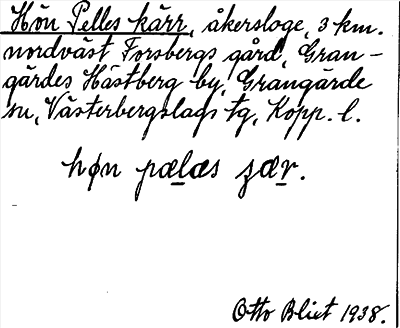 Hön Pelles kärr, åkersloge, 3 km.
nordväst Forsbergs gård, Gran-
gärdes Hästberg by, Grangärde
sn, Västerbergslags tg, Kopp. l.
høn pælæs ʒær.
Otto Blixt 1938.